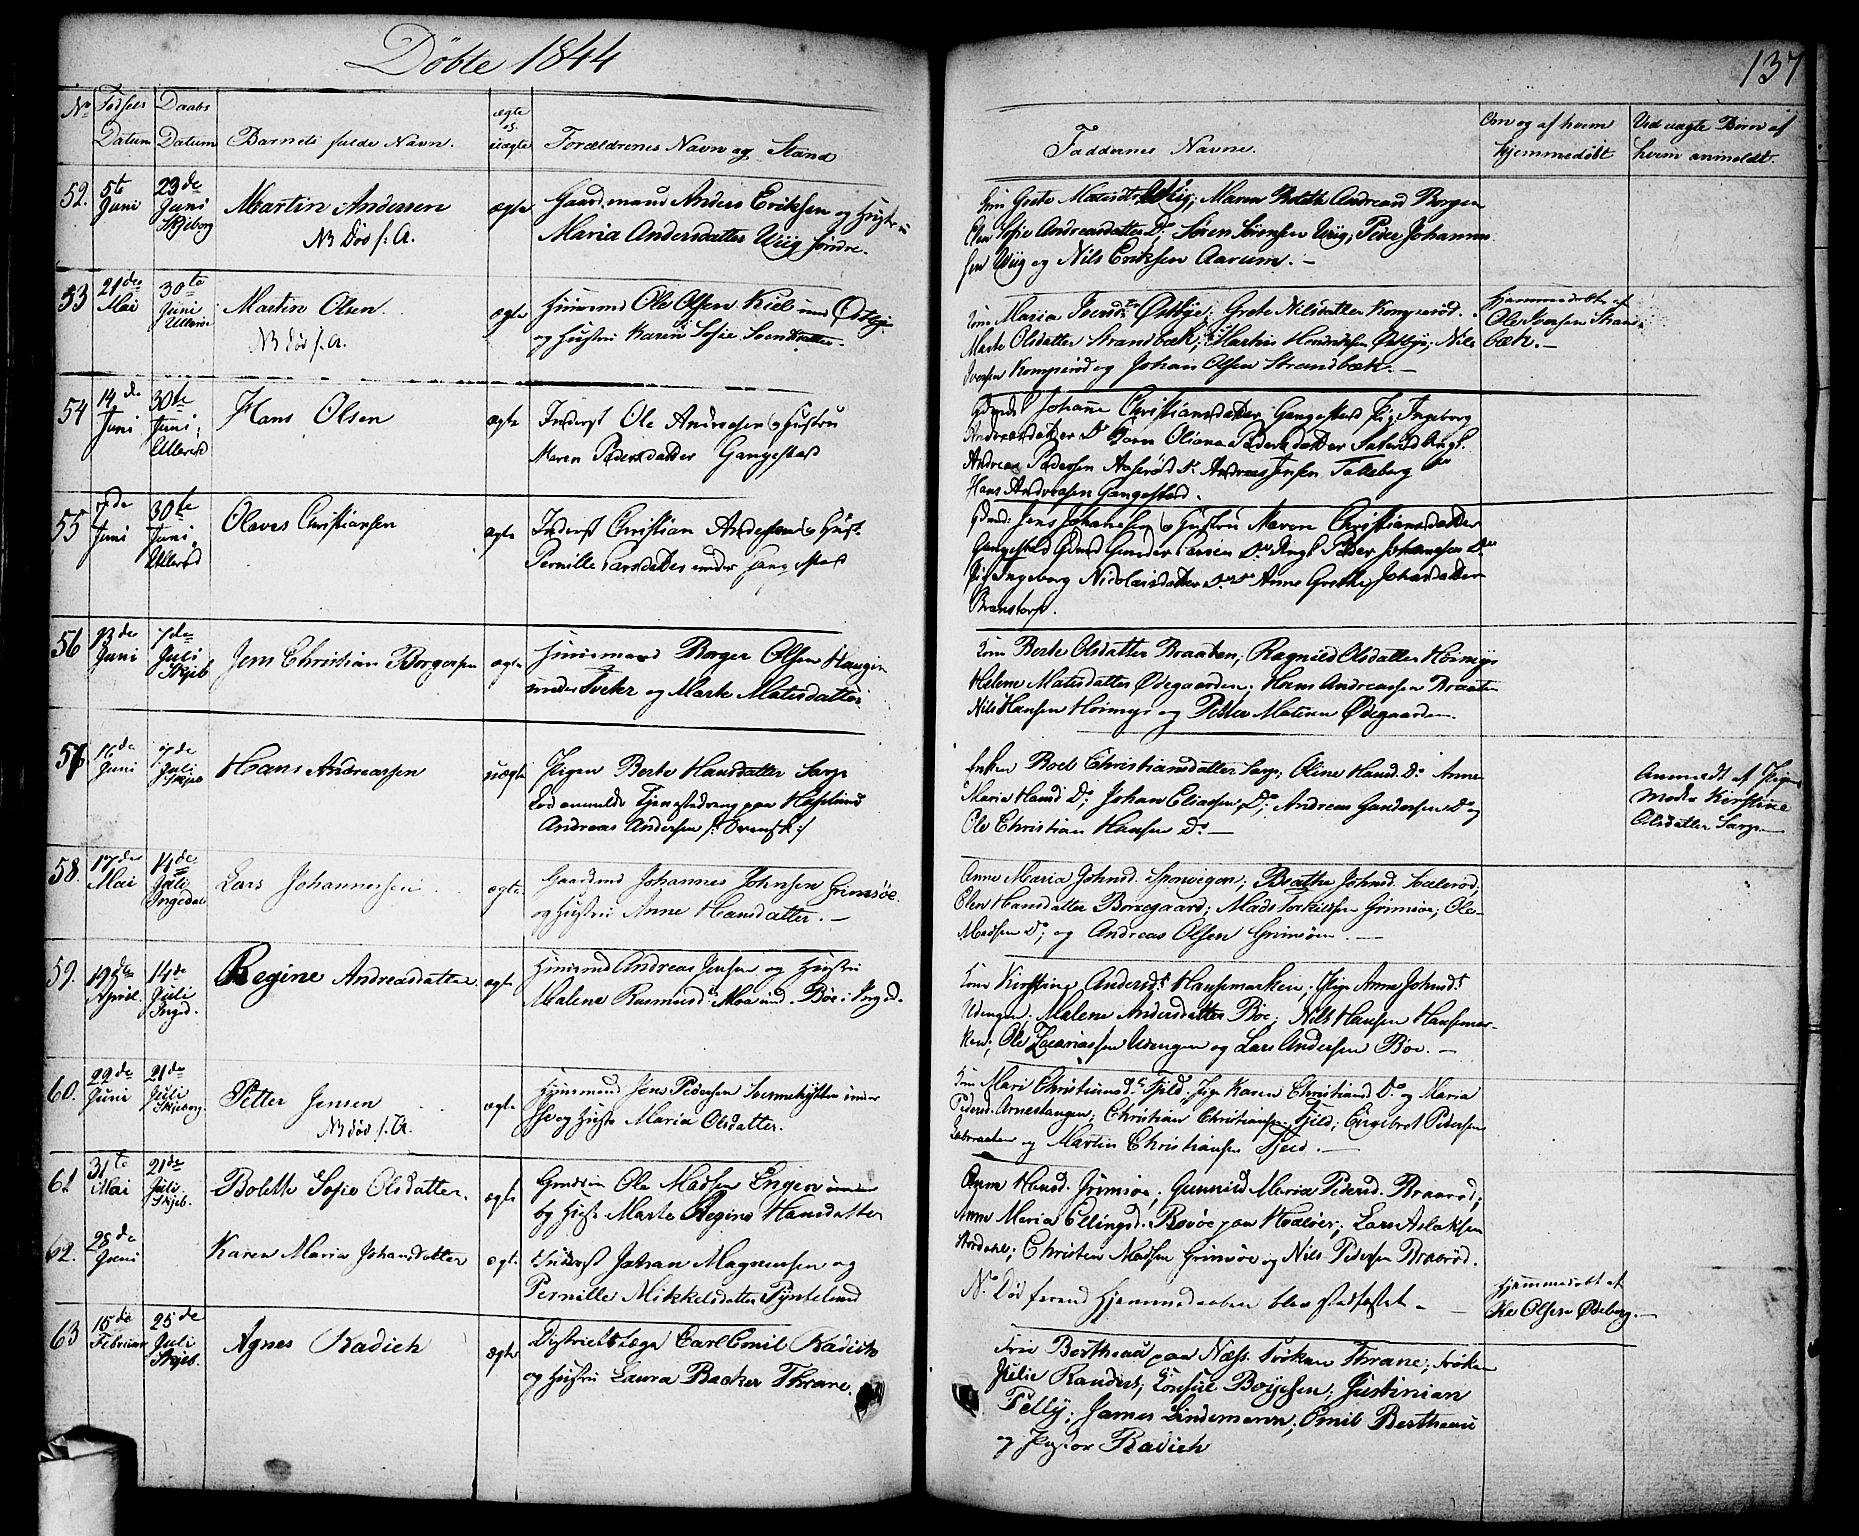 Döbte 1844
137
No
Födsels Datum
Daabs Datum
Barnets fulde Navn.
ægte el. uægte
Forældrenes Navn og Stand
Faddernes Navne.
Om og af hvem hjemmedöbt
Ved uægte Börn af hvem anmeldt.
52.
5te Juni
23de Juni Skjeborg
Martin Andersen
NB Död s. A.
ægte
Gaardmand Anders Eriksen og Hustru
Maria Andersdatter Viig söndre.
Grete Matisdtr Viig; Maren Andreasd Borgen
Sofie Andreasdatter Do. Sören Sörensen Viig; Peder Johannes
sen Viig og Nils Eriksen Aarum. —
53
21de Mai
30te Juni Ullerö
Martin Olsen.
NB död s. A.
ægte
Huusmd Ole Olsen Kiil und Östby
og Hustri Karen Sofie Svendsdatter.
Kone Maria Iversdr Östbye; Grete Nilsdatter Komperöd.
Marte Olsdatter Strandbæk; Martin Östbye; Nils
Iversen Kompröd og Johan Olsen Strandbæk. —
Hjemmedöbt af
Ole Iversen Strand-
bæk. —
54
14de Juni
30te Juni Ulleröd
Hans Olsen
ægte
Inderst Ole Andreasen og Hustru
Maren Pedersdatter Gangestad
Johanne Christiansdatter Gangestad Pig. Ingeborg
Andreasdatter Do Oliana Pedersdatter
Andreas Pedersen Andreas Jensen Takeborg
Hans Andreasen Gangestad.
55
Juni
30te Juni Ulleröd
Olaves Christiansen
ægte
Inderst Christian Andersen og Hust.
Pernille Larsdatter under Gangestad
Gdmd. Jens Johanesen og Hustru Maren Christiansdatter
Gangestad Gdmd Gunder Larsen Do Ungk. Peder Johanesen Do
Pig Ingeborg Nicolaisdatter Do Anne Grethe Johansdatter
Branstorp.
56
13de Juni
7de Juli Skjeb
Jens Christian Borgersen
ægte
Huusmand Borger Olsen Haugen
under Tveter og Marte Matisdatter
Kone Berte Olsdatter Braaten; Ragnild Olsdatter Hörmyr
Helene Matisdatter Ödegaarden; Hans Andreassen Braaten
Nils Hansen Hörmyr og Petter Matisen Ödegaarden.
57
16de Juni
7de Juli Skjeb
Hans Andreassen
uægte
Pigen Berte Hansdatter Sarp
Andreas Andersen /: Svensk :/
Enken Boel Christiansdatter Sarp; Oline Hansd. Do Anne
Maria Hansd Do; Johan Eliassen Do; Andreas Gundersen Do og
Ole Christian Hansen Do —
Anmeldt af Pigens
Moder Kirstine
Olsdatter Sarp —
58.
17de Mai
14de Juli Ingedal
Lars Johannessen
ægte.
Gaardmd Johannes Johnsen Grimsöe
og Hustri Anne Hansdatter. —
Anne Maria Johnsd. Sponvigen; Beathe Johnsd.
Olen Hansdatter Borregaard; Mads Torkildsen Grimsöe; Ole
Madsen Do; og Andreas Olsen Grimsöen. —
59.
19de April.
14de Juli Inged.
Regine Andreasdatter.
ægte
Huusmd Andreas Jensen og Hustri
Malene Rasmusdr Moe und. Böe i Inged.
Kone Kirstine Andersdr Hansemarken; Pige Anne Johnsdr
Udengen; Malene Andersdatter Böe; Nils Hansen Hansemar-
ken; Ole Zacariassen Udengen og Lars Andersen Böe. —
60.
22de Juni
21de Juli Skjeborg.
Petter Jensen
NB död s. A.
ægte
Huusmand Jens Pedersen under
og Hustr Maria Olsdatter.
Kone Mari Christiansdr Fjeld; Pige Karen Christiansd Do og Maria
Pedersd. Arnestangen; Christian Christiansen Fjeld; Engebret Pedersen
og Martin Christiansen Fjeld. —
61
31te Mai
21de Juli Skjeb.
Bolette Sofie Olsdatter.
ægte
Ole Madsen Engen
og Hust. Marte Regine Hansdatter
Anne Hansd. Grimsöe; Gunnild Maria Pedersd. Braaröd;
Anne Maria Ellingsd. paa Hvalöer; Lars Aslaksen
Christen Madsen Grimsöe og Nils Pedersen Braaröd.
62.
28de Juni
Karen Maria Johansdatter
ægte.
Inderst Johan Magnussen og
Pernille Mikkelsdatter Pyntelund
N. Död forend Hjemmedaaben blev stadfæstet. —
Hjemmedöbt af
Olsen Ödeborg. —
63
15de Februar
25de Juli Skjeb.
Agnes Radich
ægte
Districtslæge Carl Emil Radich
og Hustri Laura Backer Thrane.
Frue Bertheau paa Næss. Fröken Thrane; Fröken
Julie Randers; Consul Boyesen; Justinian
Pelly; James Lindemann; Emil Bertheau
og Pastor Radich